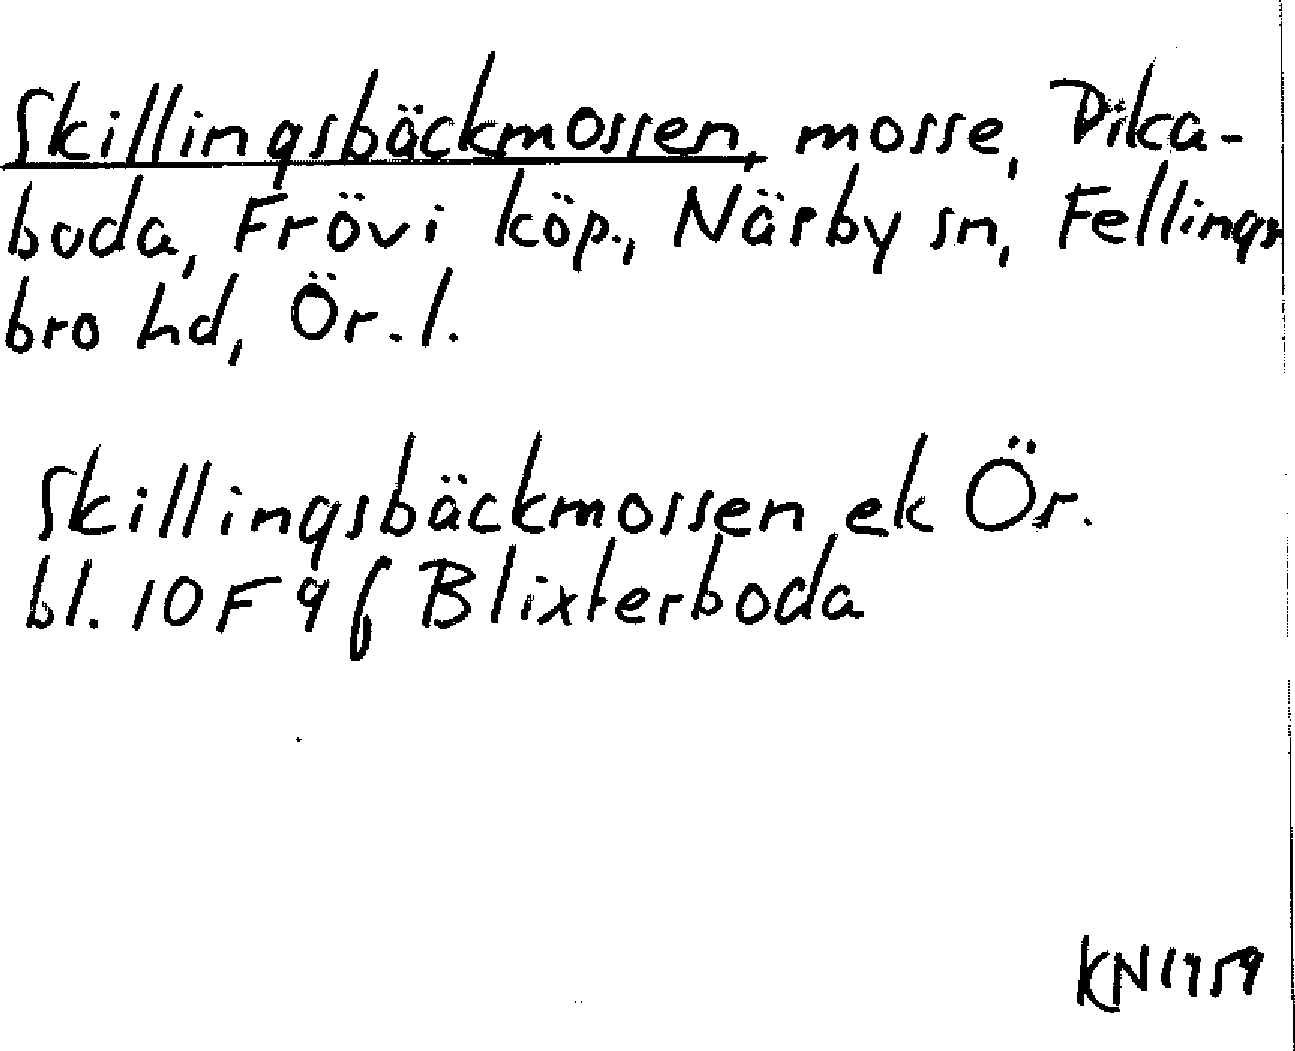 Skillingsbäckmossen, mosse, Dika-
boda, Frövi köp., Näsby sn, Fellings
bro hd, Ör. l.
Skillingsbäckmossen ek Ör.
bl. 10 F 9 f Blixterboda
KN 1959